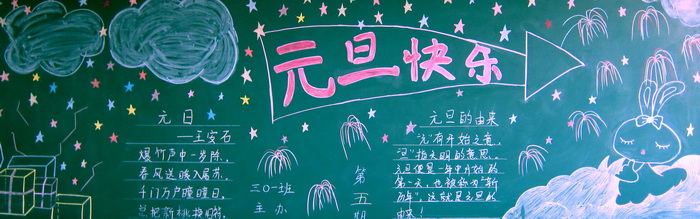 元旦快乐
元日
——王安石
爆竹声中一岁除，
春风送暖入屠苏。
千门万户曈曈日，
总把新桃换旧符。
三〇一班
主办
第五期
元旦的由来
“元”有开始之意，
“旦”指天明的意思。
元旦便是一年中开始的
第一天，也被称为“新
历年”，这就是元旦的
由来！